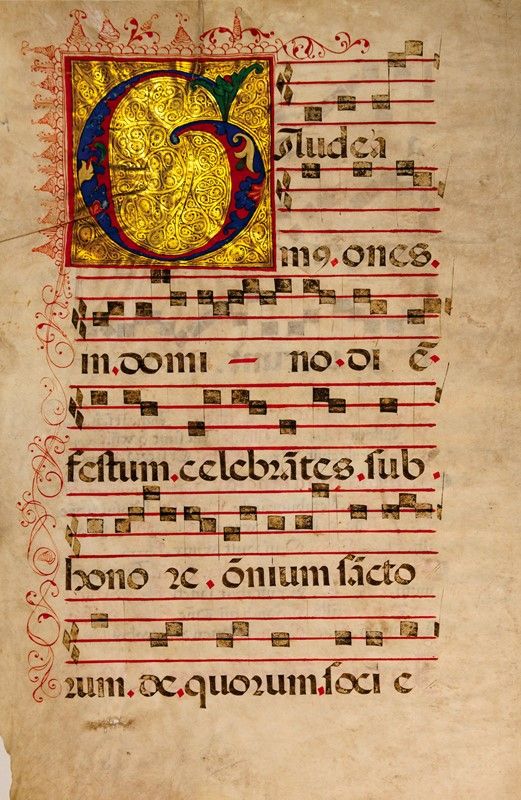 Gaudea
m9.ones.
in.domi — no.di ē.
festum.celebrātes.sub.
hono re.ōnium sācto
rum.de.quorum.soci e